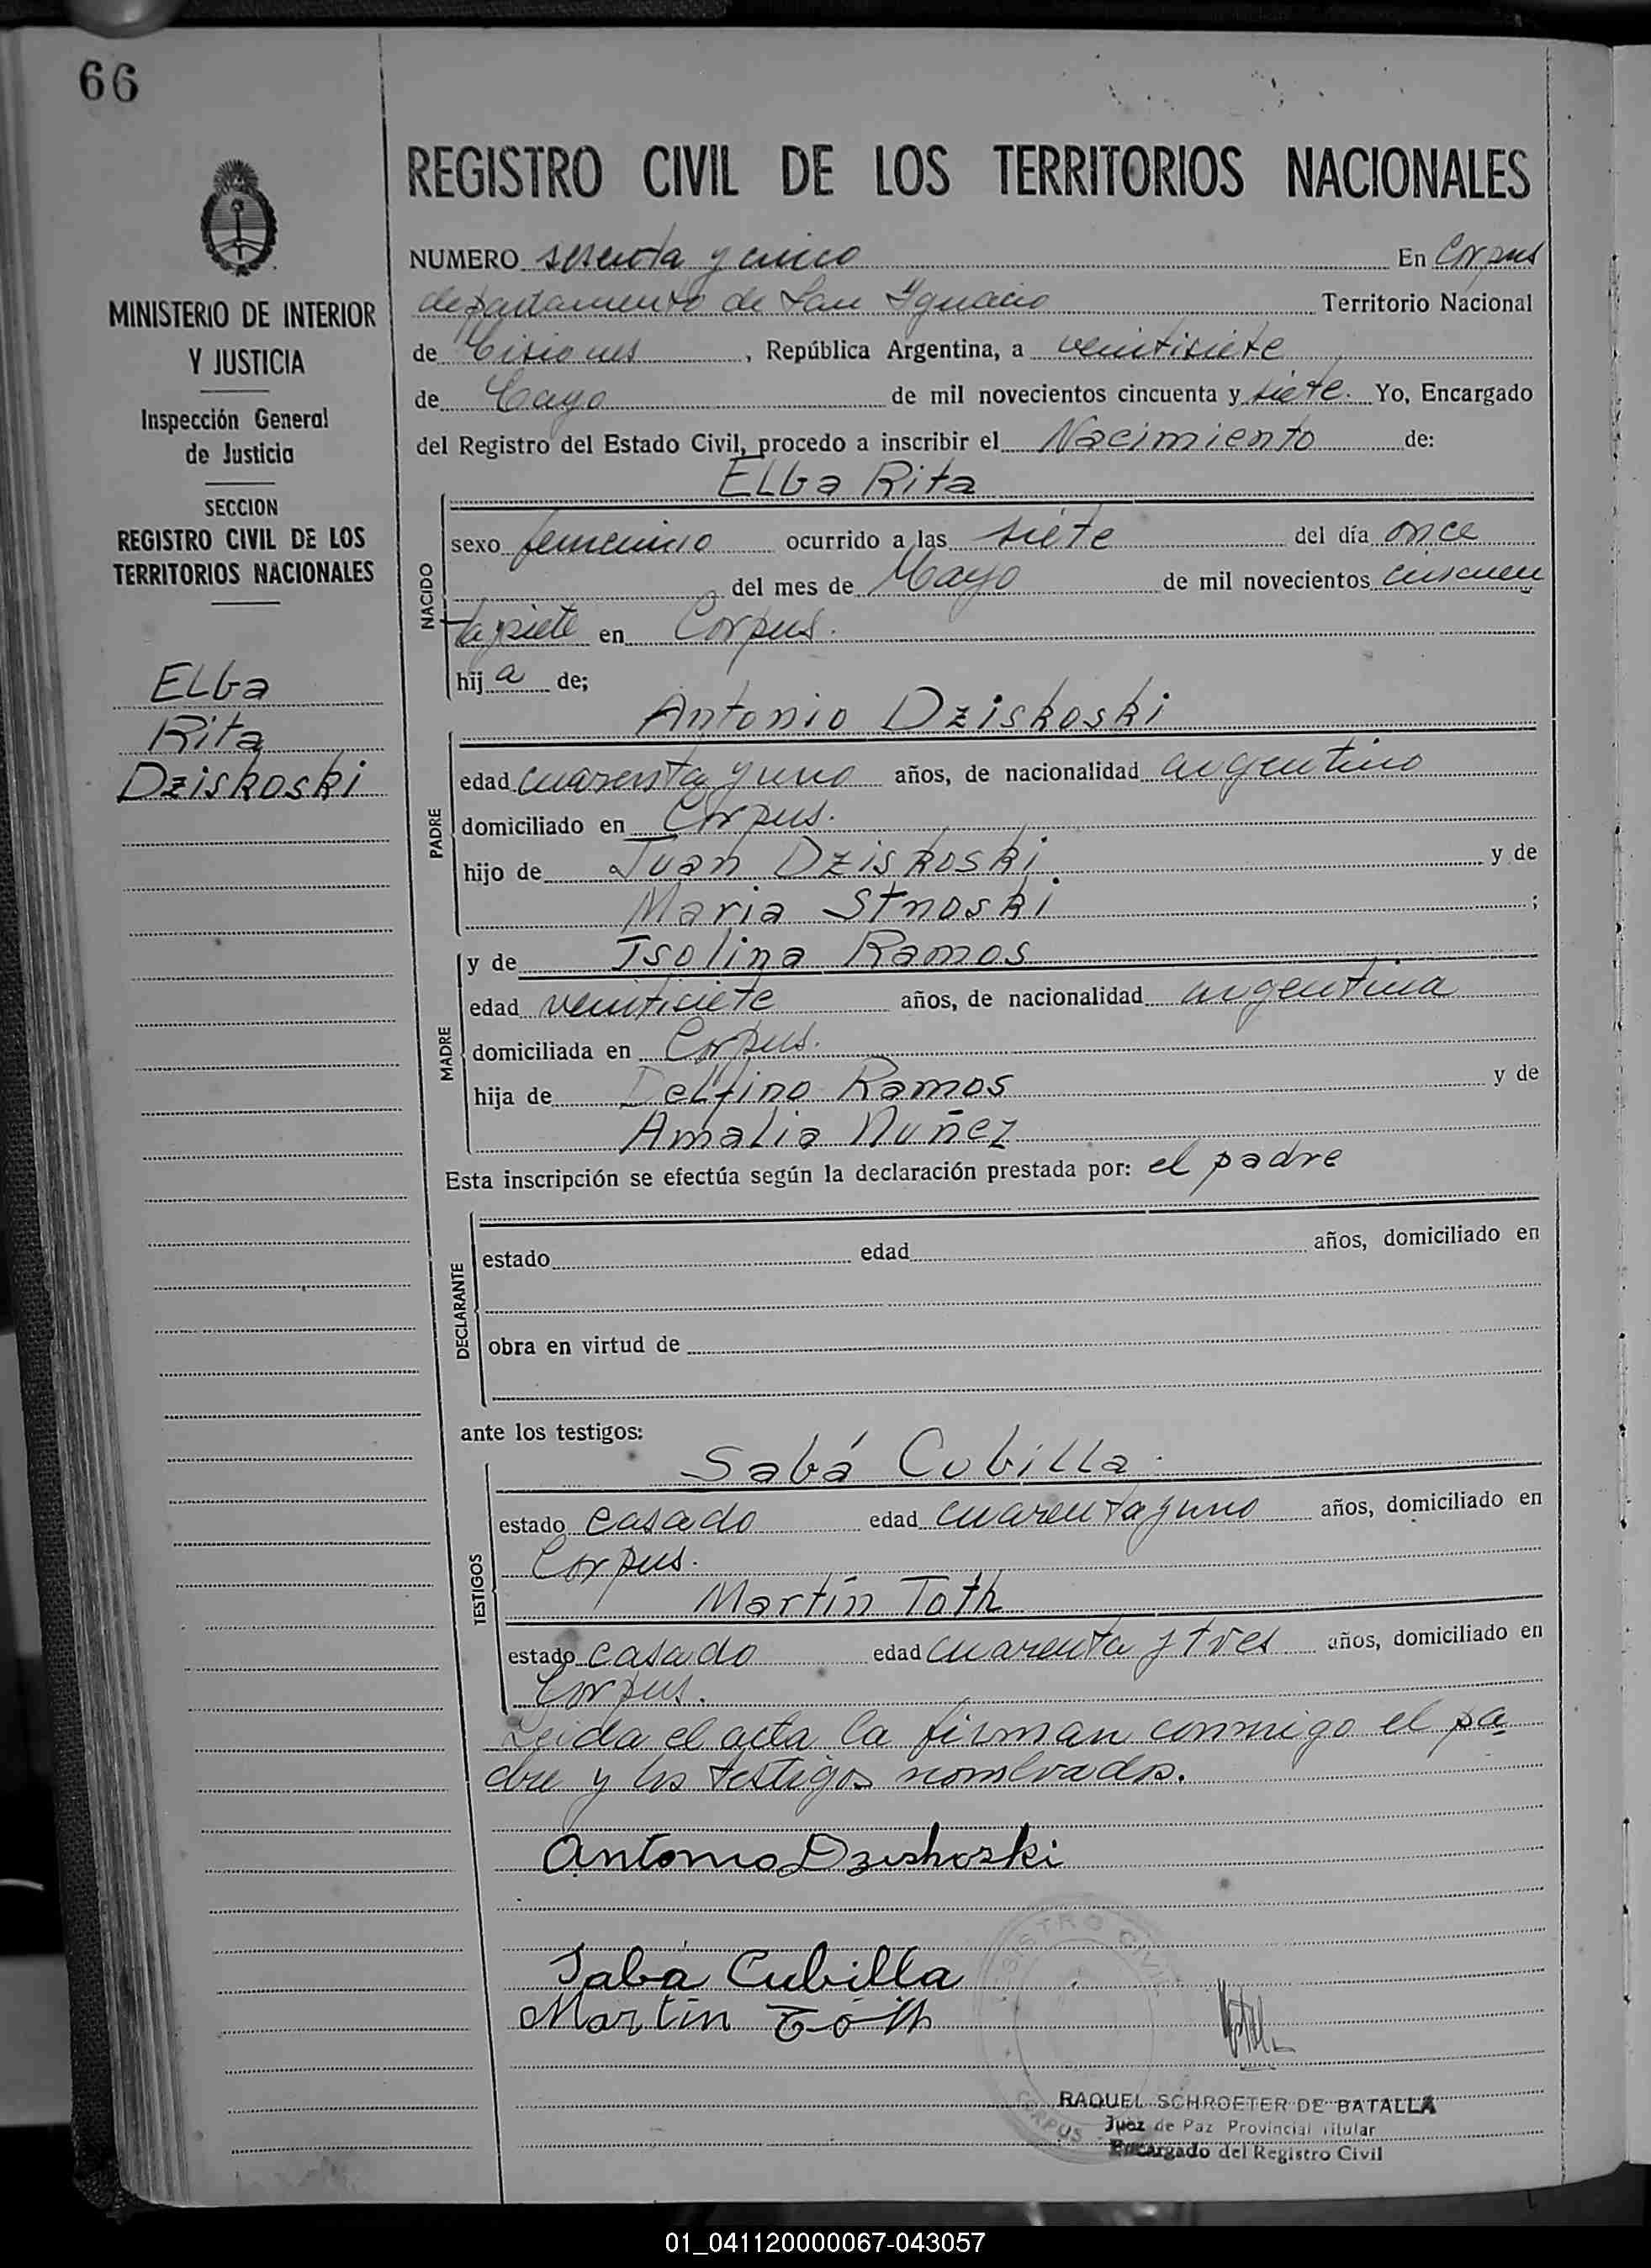 66
REGISTRO CIVIL DE LOS TERRITORIOS NACIONALES
MINISTERIO DE INTERIOR
Y JUSTICIA
Inspección General
de Justicia
SECCION
REGISTRO CIVIL DE LOS
TERRITORIOS NACIONALES
Elba
Rita
Dziskoski
NUMERO sesenta y cinco En Corpus
departamento de San Ignacio Territorio Nacional
de Misiones, República Argentina, a veintisiete
de Mayo de mil novecientos cincuenta y siete. Yo, Encargado
del Registro del Estado Civil, procedo a inscribir el Nacimiento de:
Elba Rita
NACIDO
sexo femenino ocurrido a las siete del día once
del mes de Mayo de mil novecientos cincuen
ta y siete en Corpus.
hija de;
Antonio Dziskoski
PADRE
edad cuarenta y uno años, de nacionalidad argentino
domiciliado en Corpus.
hijo de Juan Dziskoski y de
Maria Stnoski ;
y de Isolina Ramos
MADRE
edad veintisiete años, de nacionalidad argentina
domiciliada en Corpus.
hija de Delfino Ramos y de
Amalia Nuñez
Esta inscripción se efectúa según la declaración prestada por: el padre
DECLARANTE
estado edad años, domiciliado en
obra en virtud de
ante los testigos:
Sabá Cubilla.
TESTIGOS
estado casado edad cuarenta y uno años, domiciliado en
Corpus.
Martín Toth
estado casado edad cuarenta y tres años, domiciliado en
Corpus.
Leida el acta la firman conmigo el pa-
dre y los testigos nombrados.
Antonio Dzishoski
Sabá Cubilla
Martín Tóth
REGISTRO CIVIL
CORPUS
RAQUEL SCHROETER DE BATALLA
Juez de Paz Provincial Titular
Encargado del Registro Civil
01_041120000067-043057